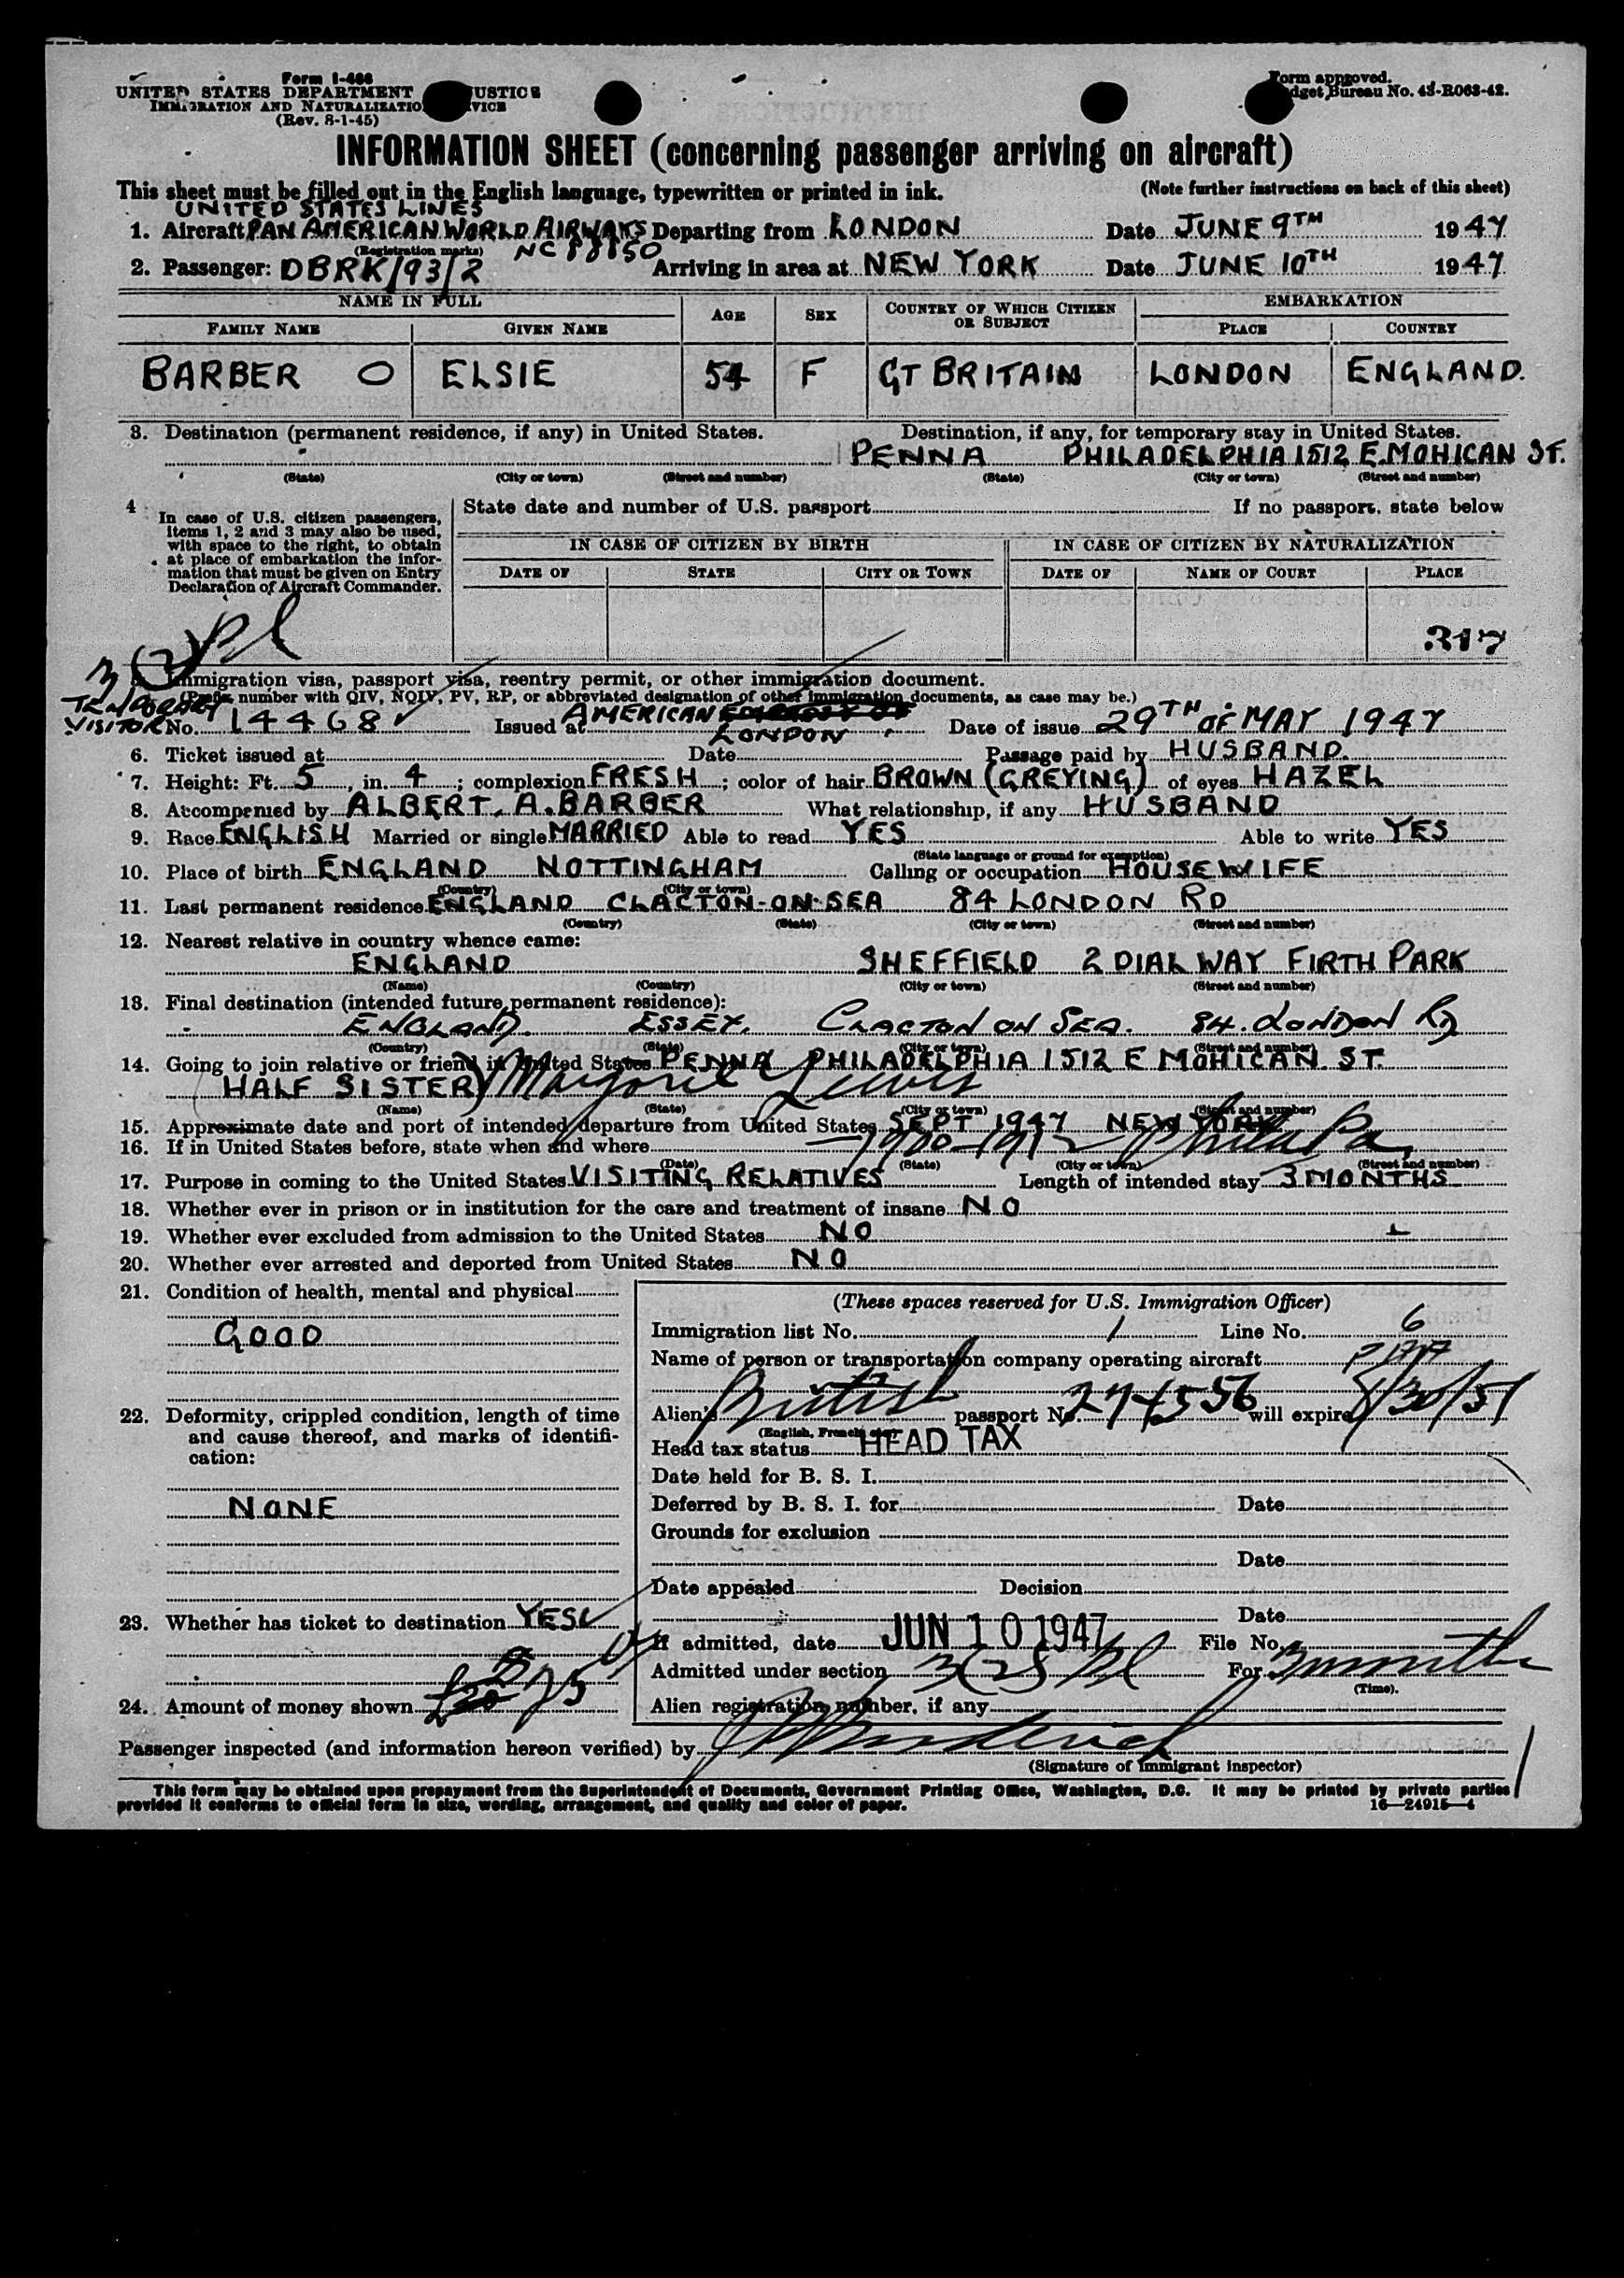 Form I-466
UNITED STATES DEPARTMENT JUSTICE
IMMIGRATION AND NATURALIZATIO VICE
(Rev. 8-1-45)
Form approved.
dget Bureau No. 43-R063-42.
INFORMATION SHEET (concerning passenger arriving on aircraft)
This sheet must be filled out in the English language, typewritten or printed in ink. (Note further instructions on back of this sheet)
UNITED STATES LINES
1. Aircraft PAN AMERICAN WORLD AIRWAYS Departing from LONDON Date JUNE 9TH 1947
(Registration marks) NC 88850
2. Passenger: DBRK/93/2 Arriving in area at NEW YORK Date JUNE 10TH 1947
NAME IN FULL AGE SEX COUNTRY OF WHICH CITIZEN OR SUBJECT EMBARKATION
FAMILY NAME GIVEN NAME PLACE COUNTRY
BARBER O ELSIE 54 F GT BRITAIN LONDON ENGLAND.
3. Destination (permanent residence, if any) in United States. Destination, if any, for temporary stay in United States.
PENNA PHILADELPHIA 1512 E. MOHICAN ST.
(State) (City or town) (Street and number) (State) (City or town) (Street and number)
4 In case of U.S. citizen passengers, items 1, 2 and 3 may also be used, with space to the right, to obtain at place of embarkation the information that must be given on Entry Declaration of Aircraft Commander.
State date and number of U.S. passport If no passport, state below
IN CASE OF CITIZEN BY BIRTH IN CASE OF CITIZEN BY NATURALIZATION
DATE OF STATE CITY OR TOWN DATE OF NAME OF COURT PLACE
317
3 (2) pl
Immigration visa, passport visa, reentry permit, or other immigration document.
(Prefix number with QIV, NQIV, PV, RP, or abbreviated designation of other immigration documents, as case may be.)
TEMPORARY VISITOR No. 14468 Issued at AMERICAN EMBASSY LONDON Date of issue 29TH OF MAY 1947
6. Ticket issued at Date Passage paid by HUSBAND.
7. Height: Ft. 5, in. 4; complexion FRESH; color of hair BROWN (GREYING) of eyes HAZEL
8. Accompenied by ALBERT. A. BARBER What relationship, if any HUSBAND
9. Race ENGLISH Married or single MARRIED Able to read YES Able to write YES
(State language or ground for exemption)
10. Place of birth ENGLAND NOTTINGHAM Calling or occupation HOUSEWIFE
(Country) (City or town)
11. Last permanent residence ENGLAND CLACTON-ON-SEA 84 LONDON RD
(Country) (State) (City or town) (Street and number)
12. Nearest relative in country whence came:
ENGLAND SHEFFIELD 2 DIAL WAY FIRTH PARK
(Name) (Country) (City or town) (Street and number)
13. Final destination (intended future permanent residence):
ENGLAND. ESSEX. CLACTON ON SEA. 84. LONDON RD
(Country) (State) (City or town) (Street and number)
14. Going to join relative or friend in United States PENNA PHILADELPHIA 1512 E MOHICAN. ST.
HALF SISTER) Marjorie Lewis
(Name) (State) (City or town) (Street and number)
15. Approximate date and port of intended departure from United States SEPT 1947 NEW YORK
16. If in United States before, state when and where 1910-1912 Phila Pa,
(Date) (State) (City or town) (Street and number)
17. Purpose in coming to the United States VISITING RELATIVES Length of intended stay 3 MONTHS
18. Whether ever in prison or in institution for the care and treatment of insane NO
19. Whether ever excluded from admission to the United States NO
20. Whether ever arrested and deported from United States NO
21. Condition of health, mental and physical
GOOD
22. Deformity, crippled condition, length of time and cause thereof, and marks of identification:
NONE
23. Whether has ticket to destination YES
24. Amount of money shown £20 $75
(These spaces reserved for U.S. Immigration Officer)
Immigration list No. 1 Line No. 6
Name of person or transportation company operating aircraft
Alien's British passport No. 274556 will expire 5/30/51
(English, French, etc.)
Head tax status HEAD TAX
Date held for B. S. I.
Deferred by B. S. I. for Date
Grounds for exclusion
Date
Date appealed Decision
Date
If admitted, date JUN 10 1947 File No.
Admitted under section 3(2) pl For 3 months
(Time).
Alien registration number, if any
Passenger inspected (and information hereon verified) by
(Signature of immigrant inspector)
This form may be obtained upon prepayment from the Superintendent of Documents, Government Printing Office, Washington, D.C. It may be printed by private parties
provided it conforms to official form in size, wording, arrangement, and quality and color of paper. 16—24915-4